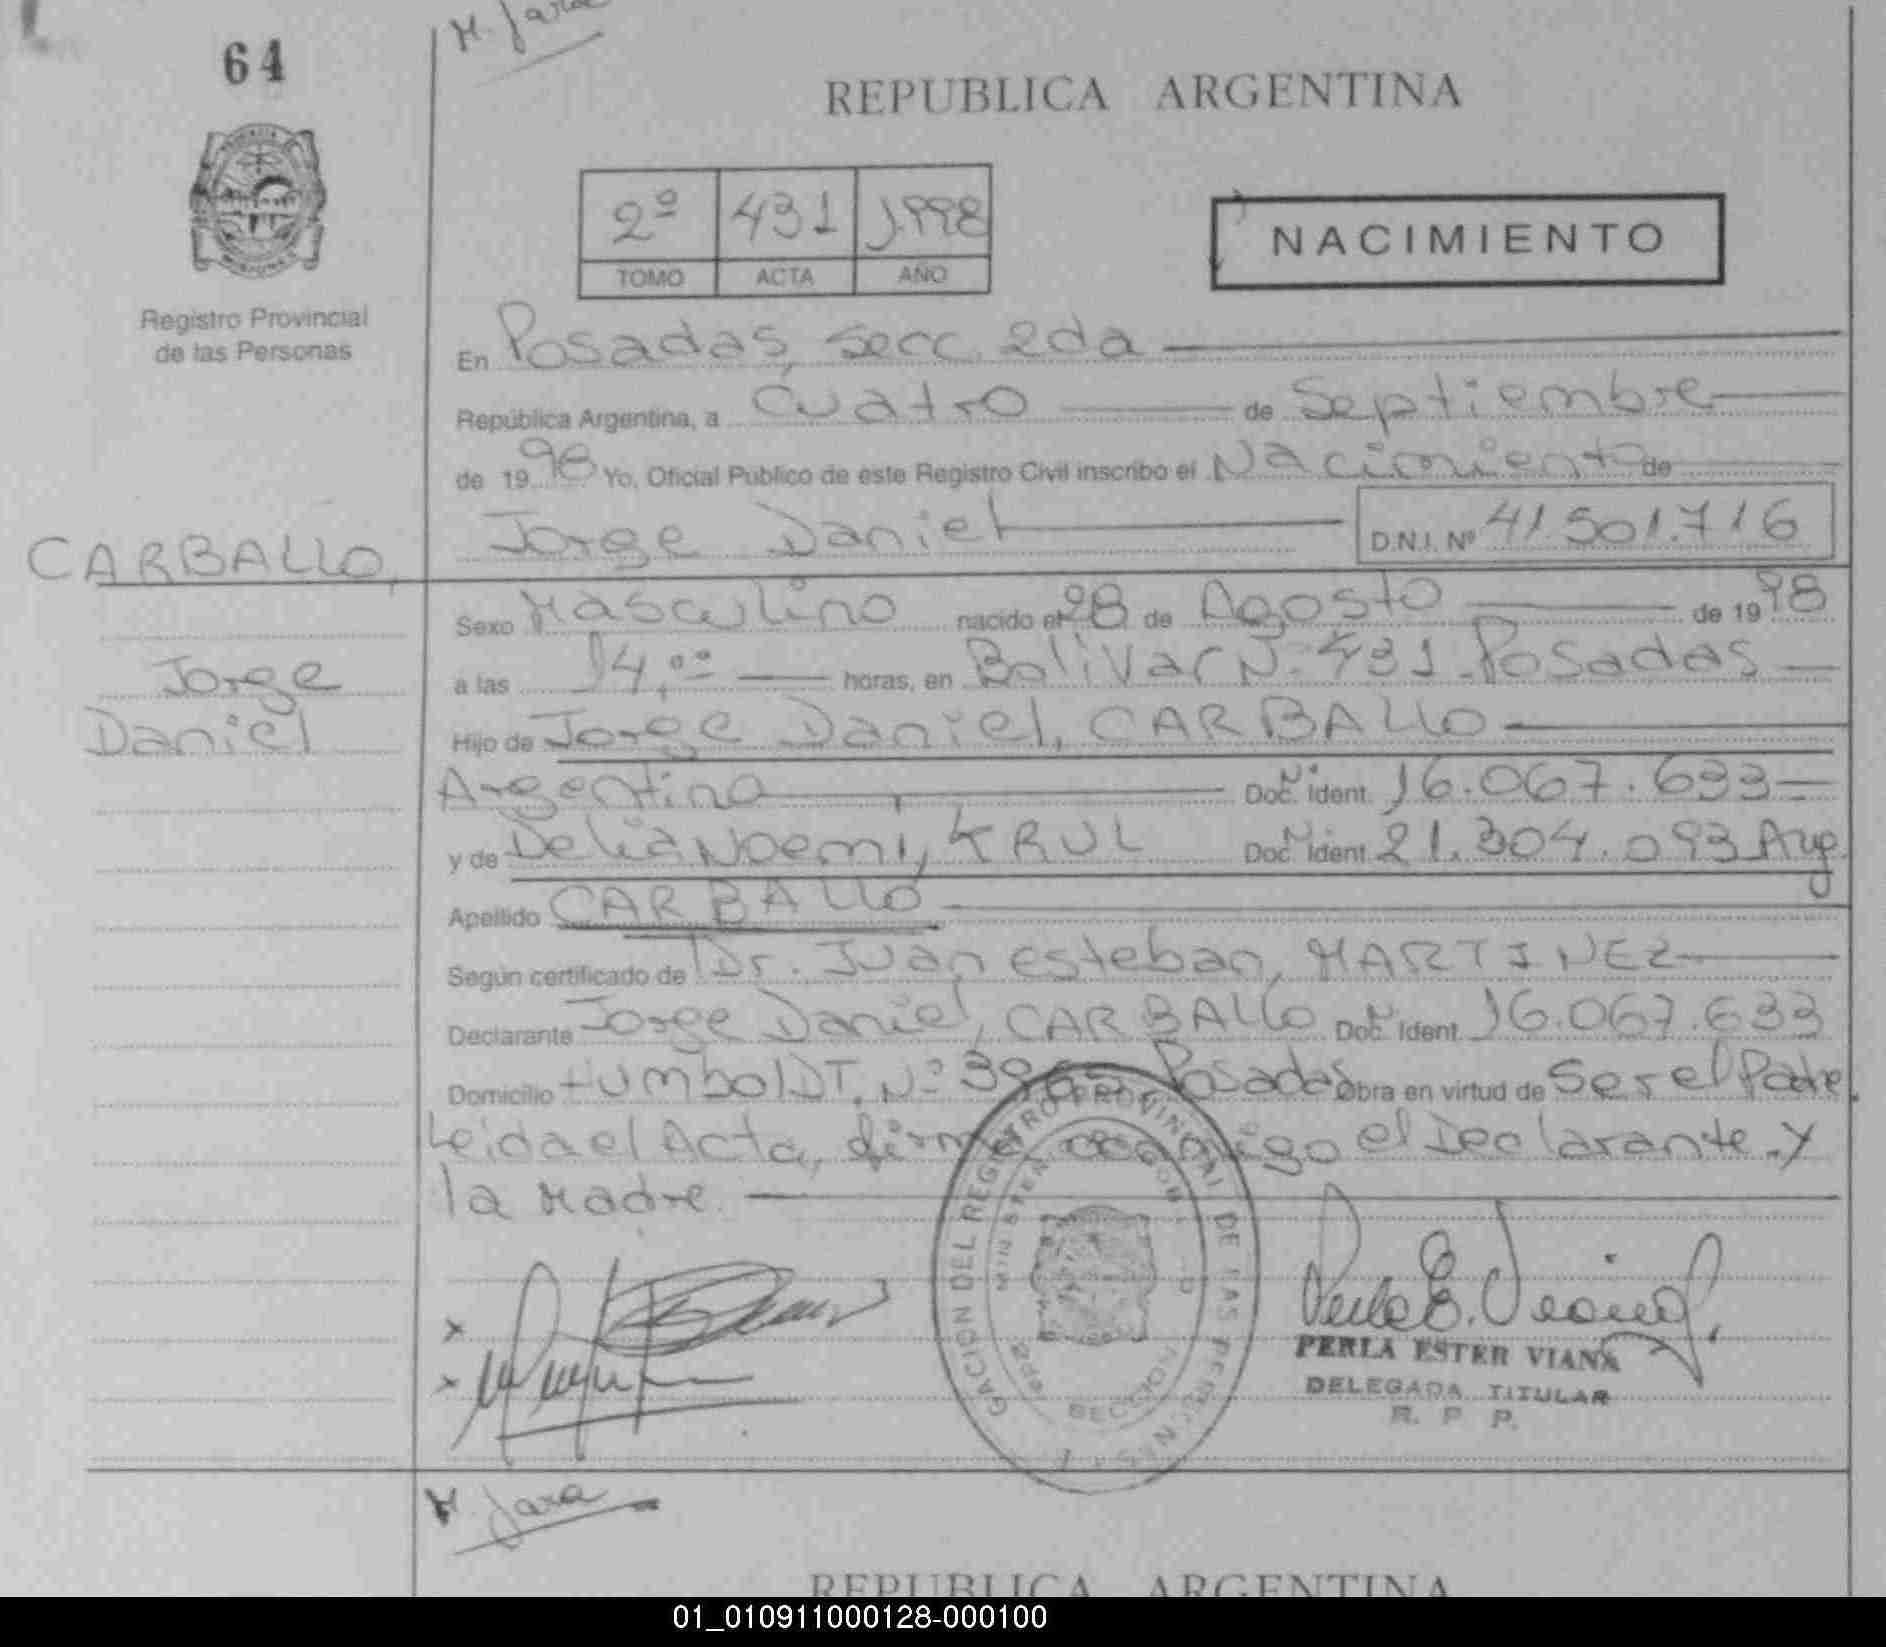 M. Jara
64
REPUBLICA ARGENTINA
2º 431 1.998
TOMO ACTA AÑO
NACIMIENTO
Registro Provincial
de las Personas
En Posadas, Secc. 2da
República Argentina, a Cuatro de Septiembre
de 1998 Yo, Oficial Público de este Registro Civil inscribo el Nacimiento de
Jorge Daniel D.N.I. Nº 41.501.716
CARBALLO,
Jorge
Daniel
Sexo Masculino nacido el 28 de Agosto de 1998
a las 14,ºº horas, en Bolivar Nº 431 - Posadas
Hijo de Jorge Daniel, CARBALLO
Argentino Doc. Nº Ident. 16.067.633
y de Delia Noemi, KRUL Doc. Nº Ident. 21.304.093 Arg.
Apellido CARBALLO
Según certificado de Dr. Juan esteban, MARTINEZ
Declarante Jorge Daniel, CARBALLO Doc. Nº Ident. 16.067.633
Domicilio HumbolDT. Nº Posadas Obra en virtud de Ser el Padre.
Leida el Acta, firma conmigo el Declarante. y
la Madre.
PERLA ESTER VIANA
DELEGADA TITULAR
R. P. P.
M. Jara
REPUBLICA ARGENTINA
01_010911000128-000100